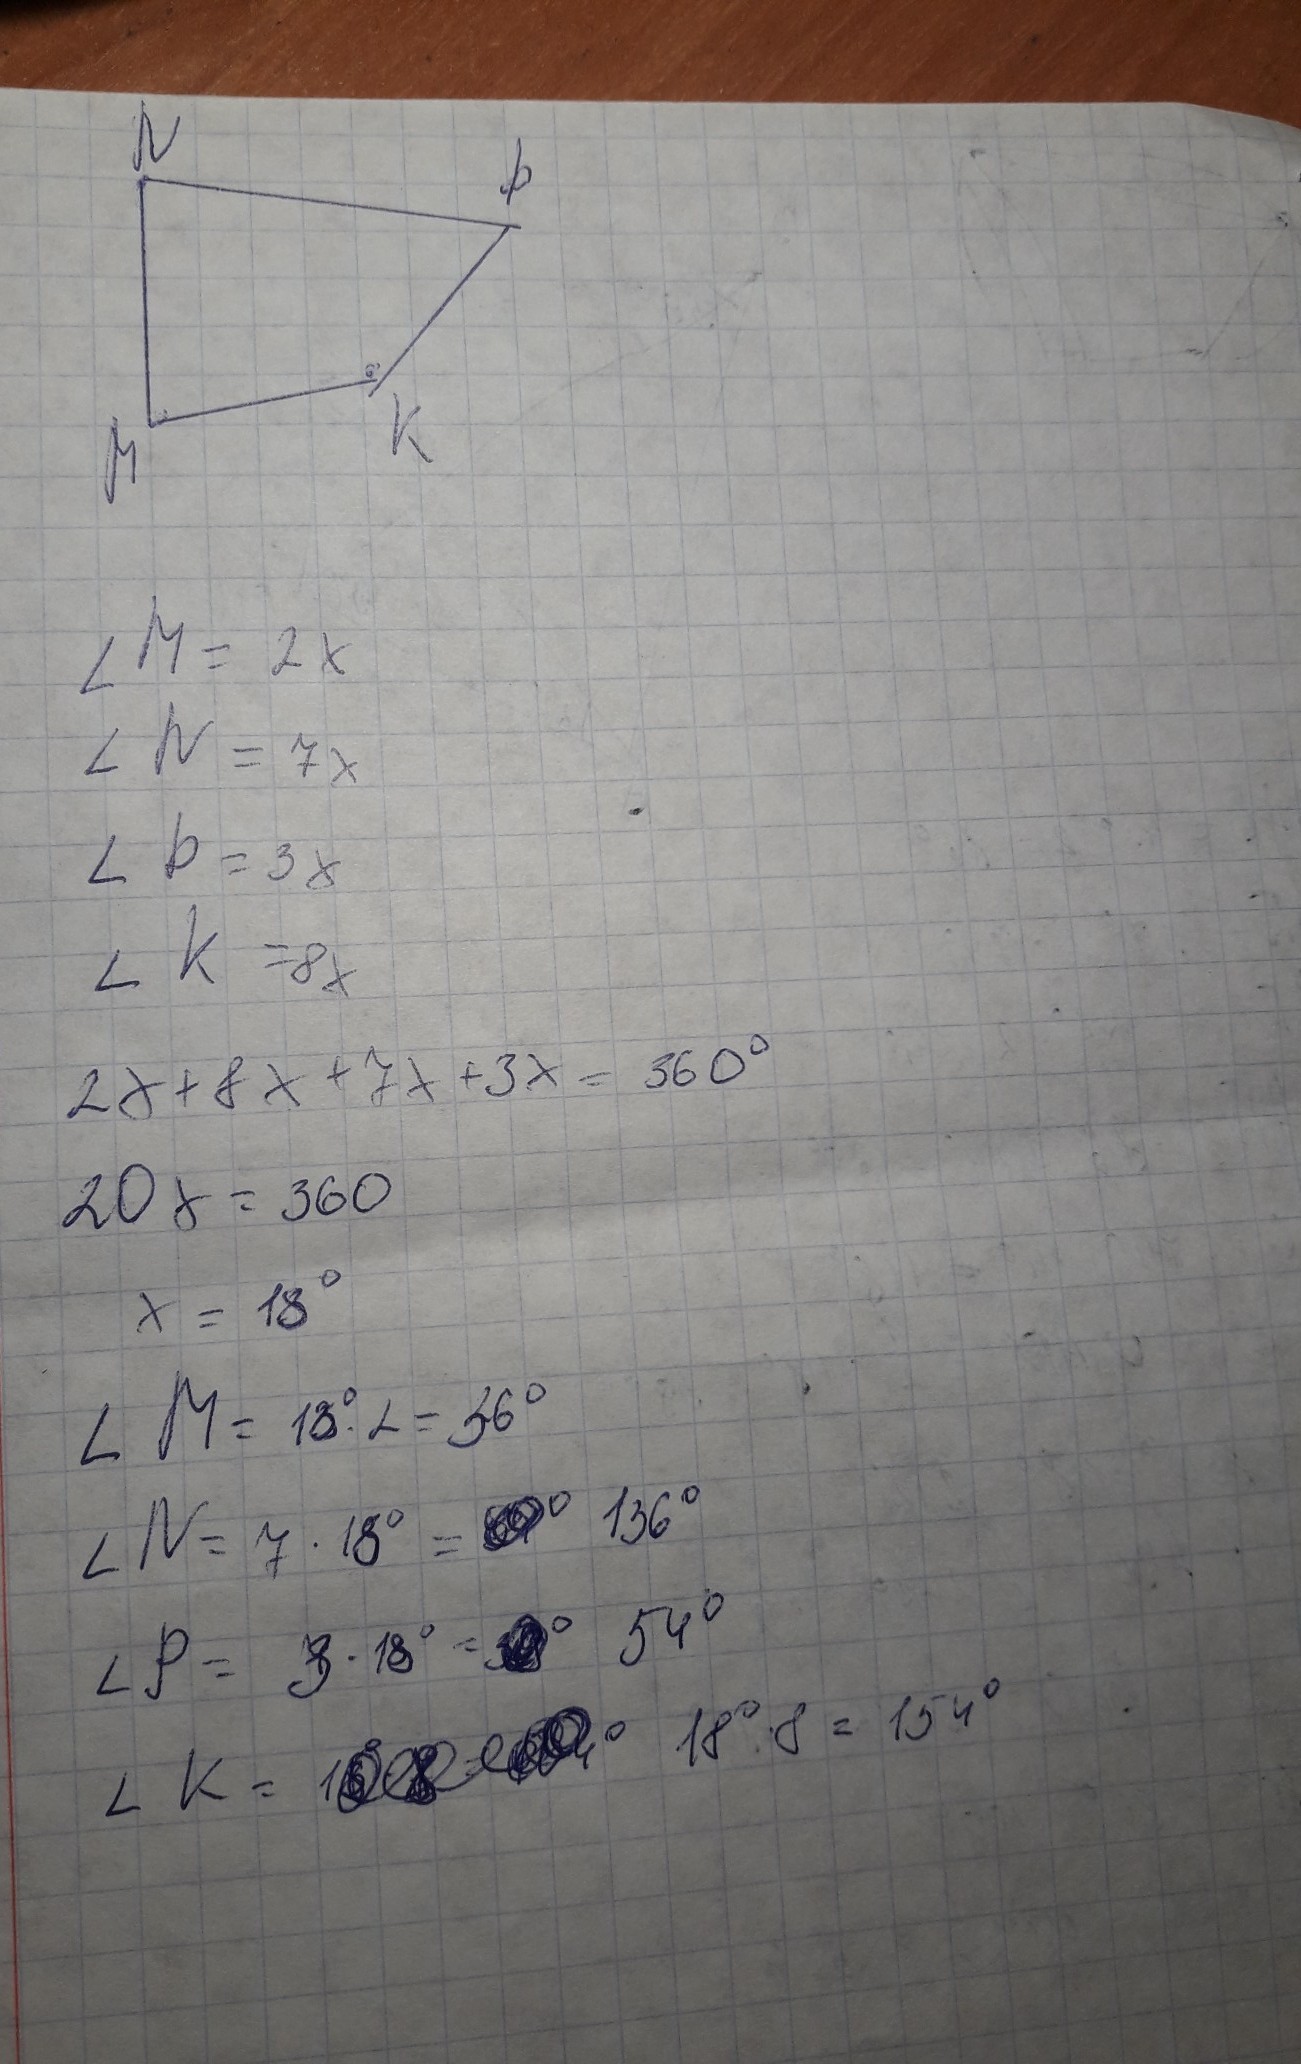 N
P
K
M
∠M = 2x
∠N = 7x
∠P = 3x
∠K = 8x
2x + 8x + 7x + 3x = 360°
20x = 360
x = 18°
∠M = 18° · 2 = 36°
∠N = 7 · 18° = 136°
∠P = 3 · 18° = 54°
∠K = 18° · 8 = 154°